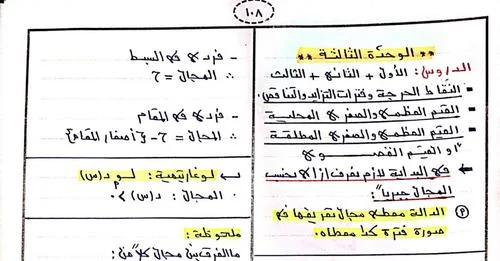 ١٠٨
** الوحدة الثالثة **
الدروس: الأول + الثاني + الثالث
- النقاط الحرجة وفترات التزايد والتناقص.
- القيم العظمى والصغرى المحلية
- القيم العظمى والصغرى المطلقة
"أو القيم القصوى"
← في البداية لازم نعرف إزاي نحسب
المجال جبرياً":
(٢) الدالة معطى مجال تعريفها في
صورة فترة كما معطاه.
- فردي في البسط
∴ المجال = ح
- فردي في المقام
∴ المجال = ح - {أصفار المقام}
ب) لوغاريتمية: لو د(س)
المجال: د(س) > ٠
ملحوظة:
ما الفرق بين مجال كلاً من: